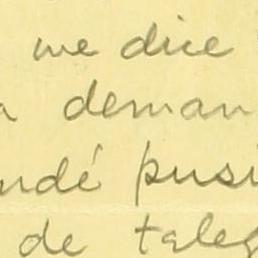 me dice
a deman
ndé pusi
de teleg